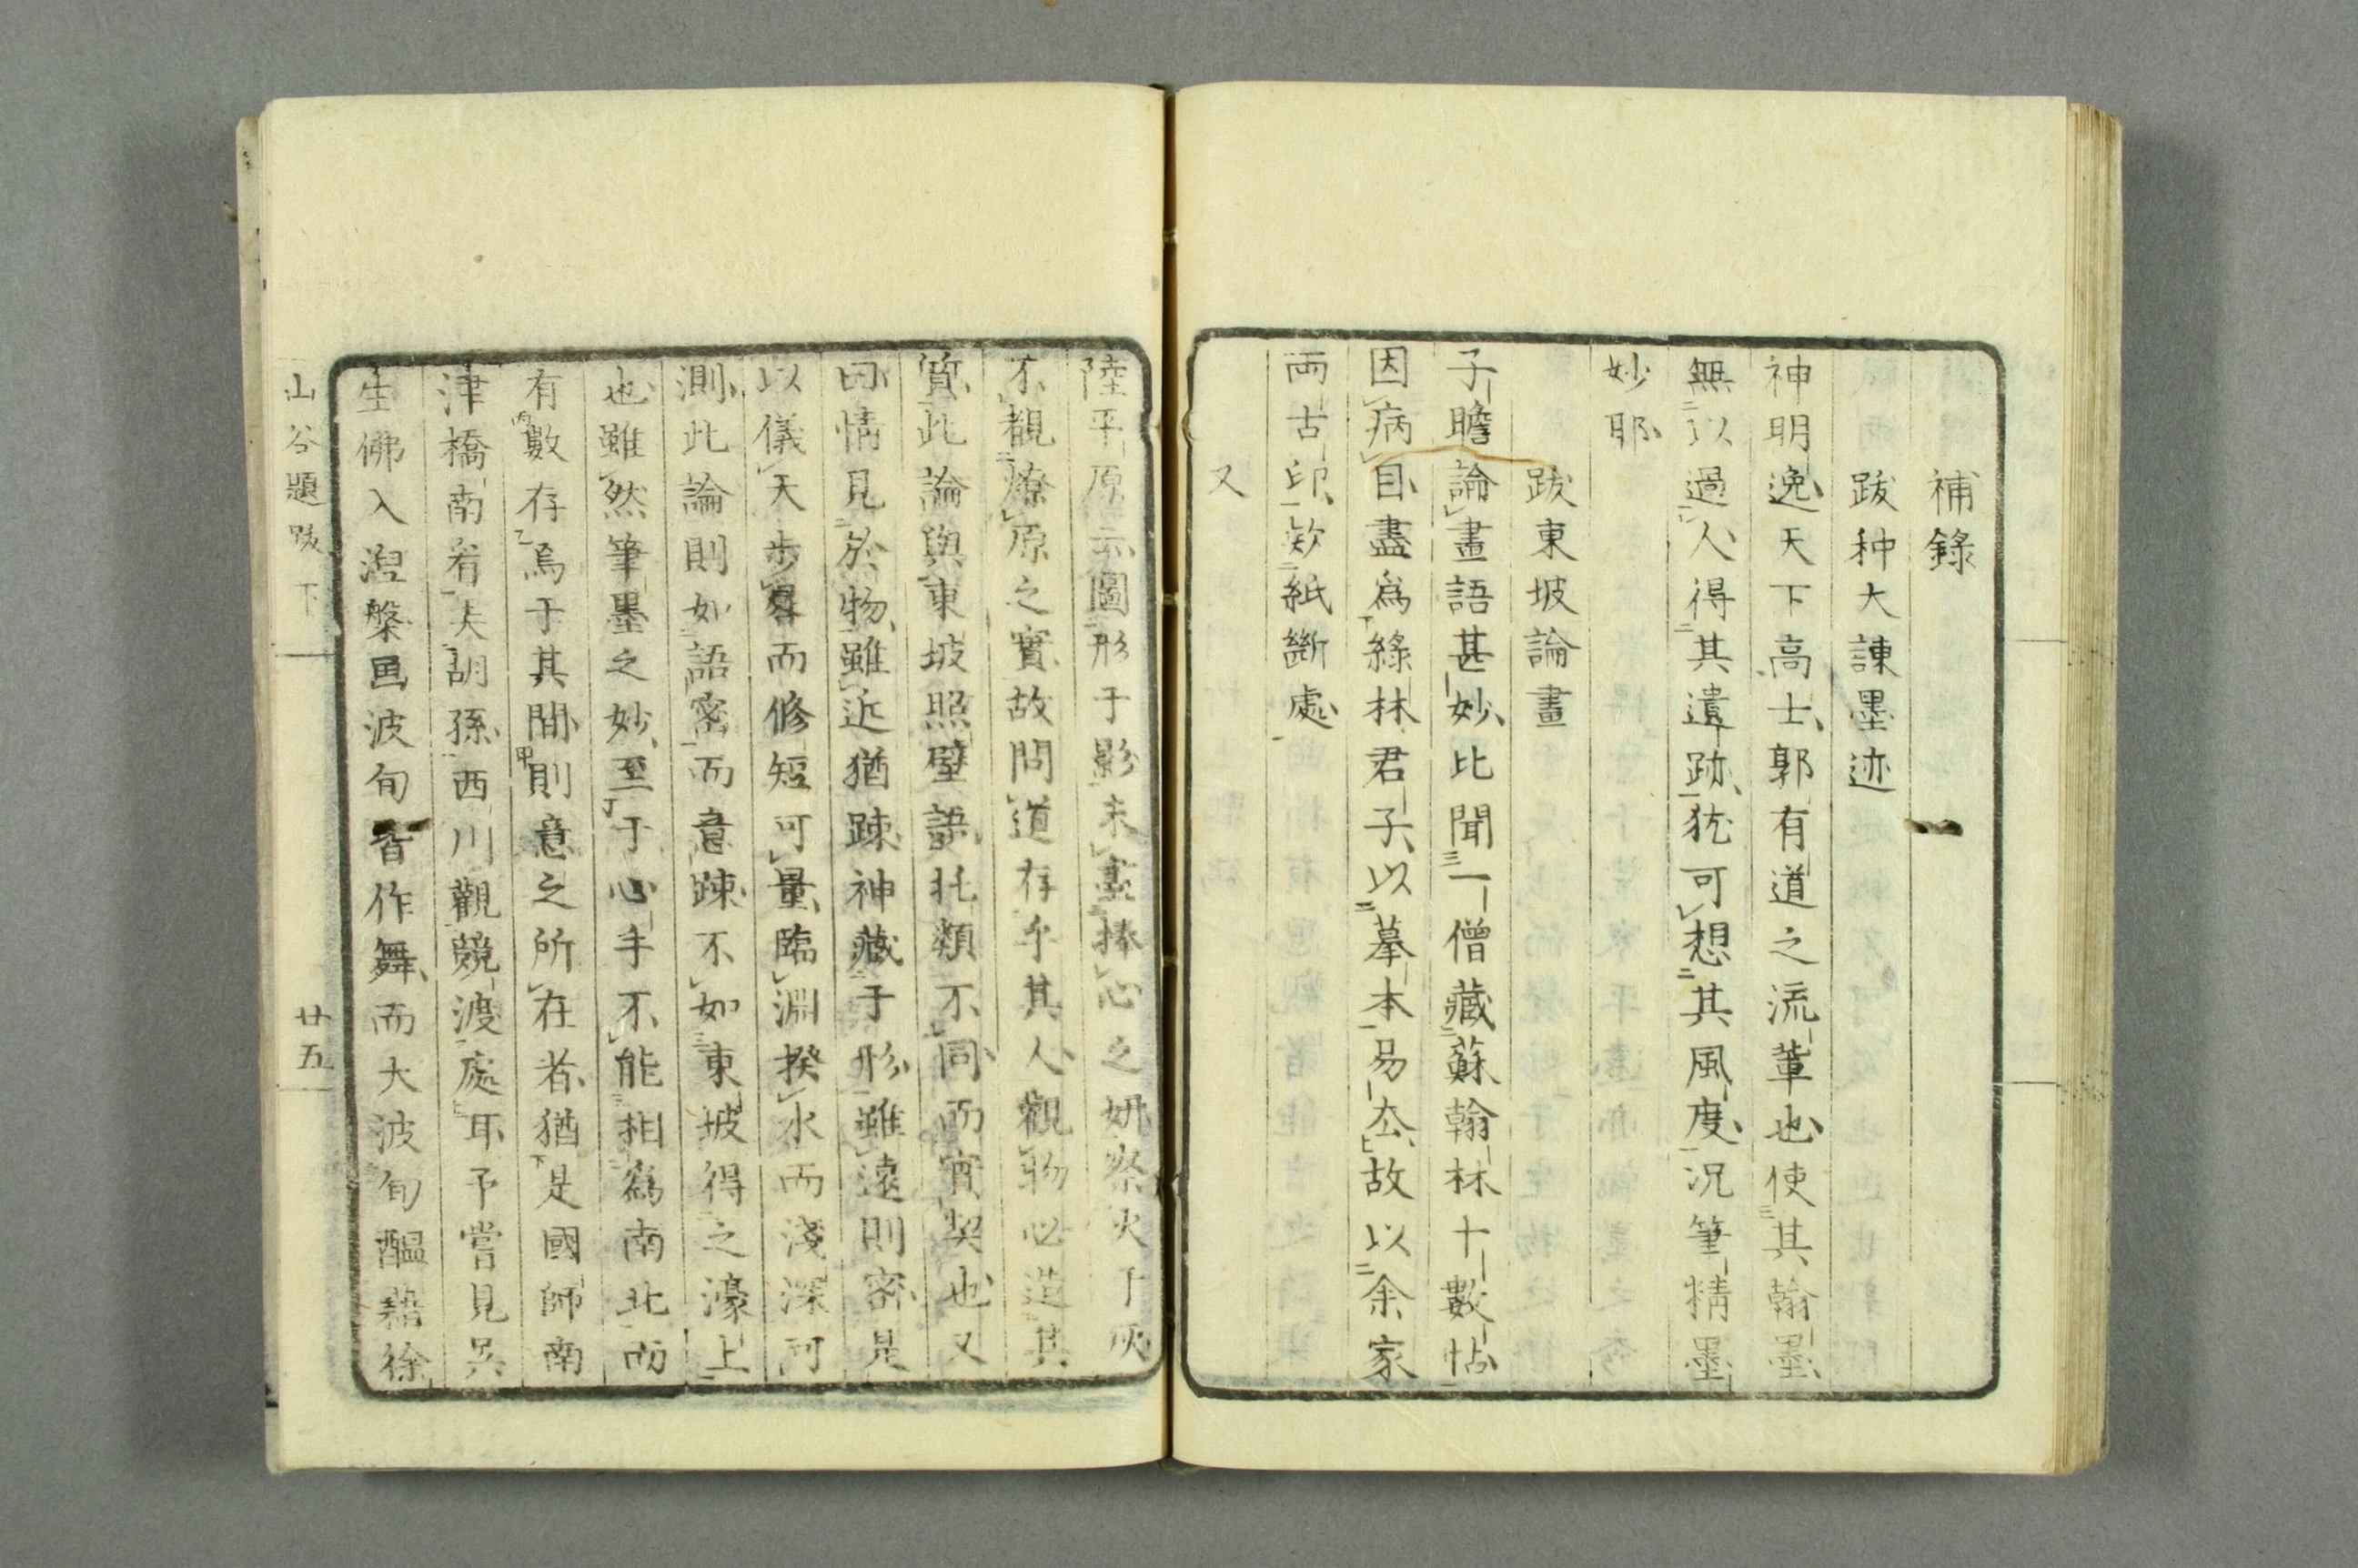 補錄
跋种大諫墨迹
神明逸天下高士郭有道之流輩也使其翰墨
無以過人得其遺跡犹可想其風度况筆精墨
妙耶
跋東坡論畫
子瞻論畫語甚妙比聞一僧藏蘇翰林十數帖
因病目盡爲綠林君子以摹本易去故以余家
兩古印欵紙斷處
又
陸平原云圖形于影未盡捧心之妍察火于灰
不覩燎原之實故問道存乎其人觀物必造其
質此論與東坡照壁語托類不同而實契也又
曰情見於物雖近猶踈神藏于形雖遠則密是
以儀天步晷而修短可量臨淵揆水而淺深可
測此論則如語密而意踈不如東坡得之濠上
也雖然筆墨之妙至于心手不能相爲南北而
有數存焉于其間則意之所在者猶是國師南
津橋南看夫胡孫西川觀競渡處耳予嘗見吳
生佛入涅槃画波旬皆作舞而大波旬醞藉徐
山谷題跋 下 廿五